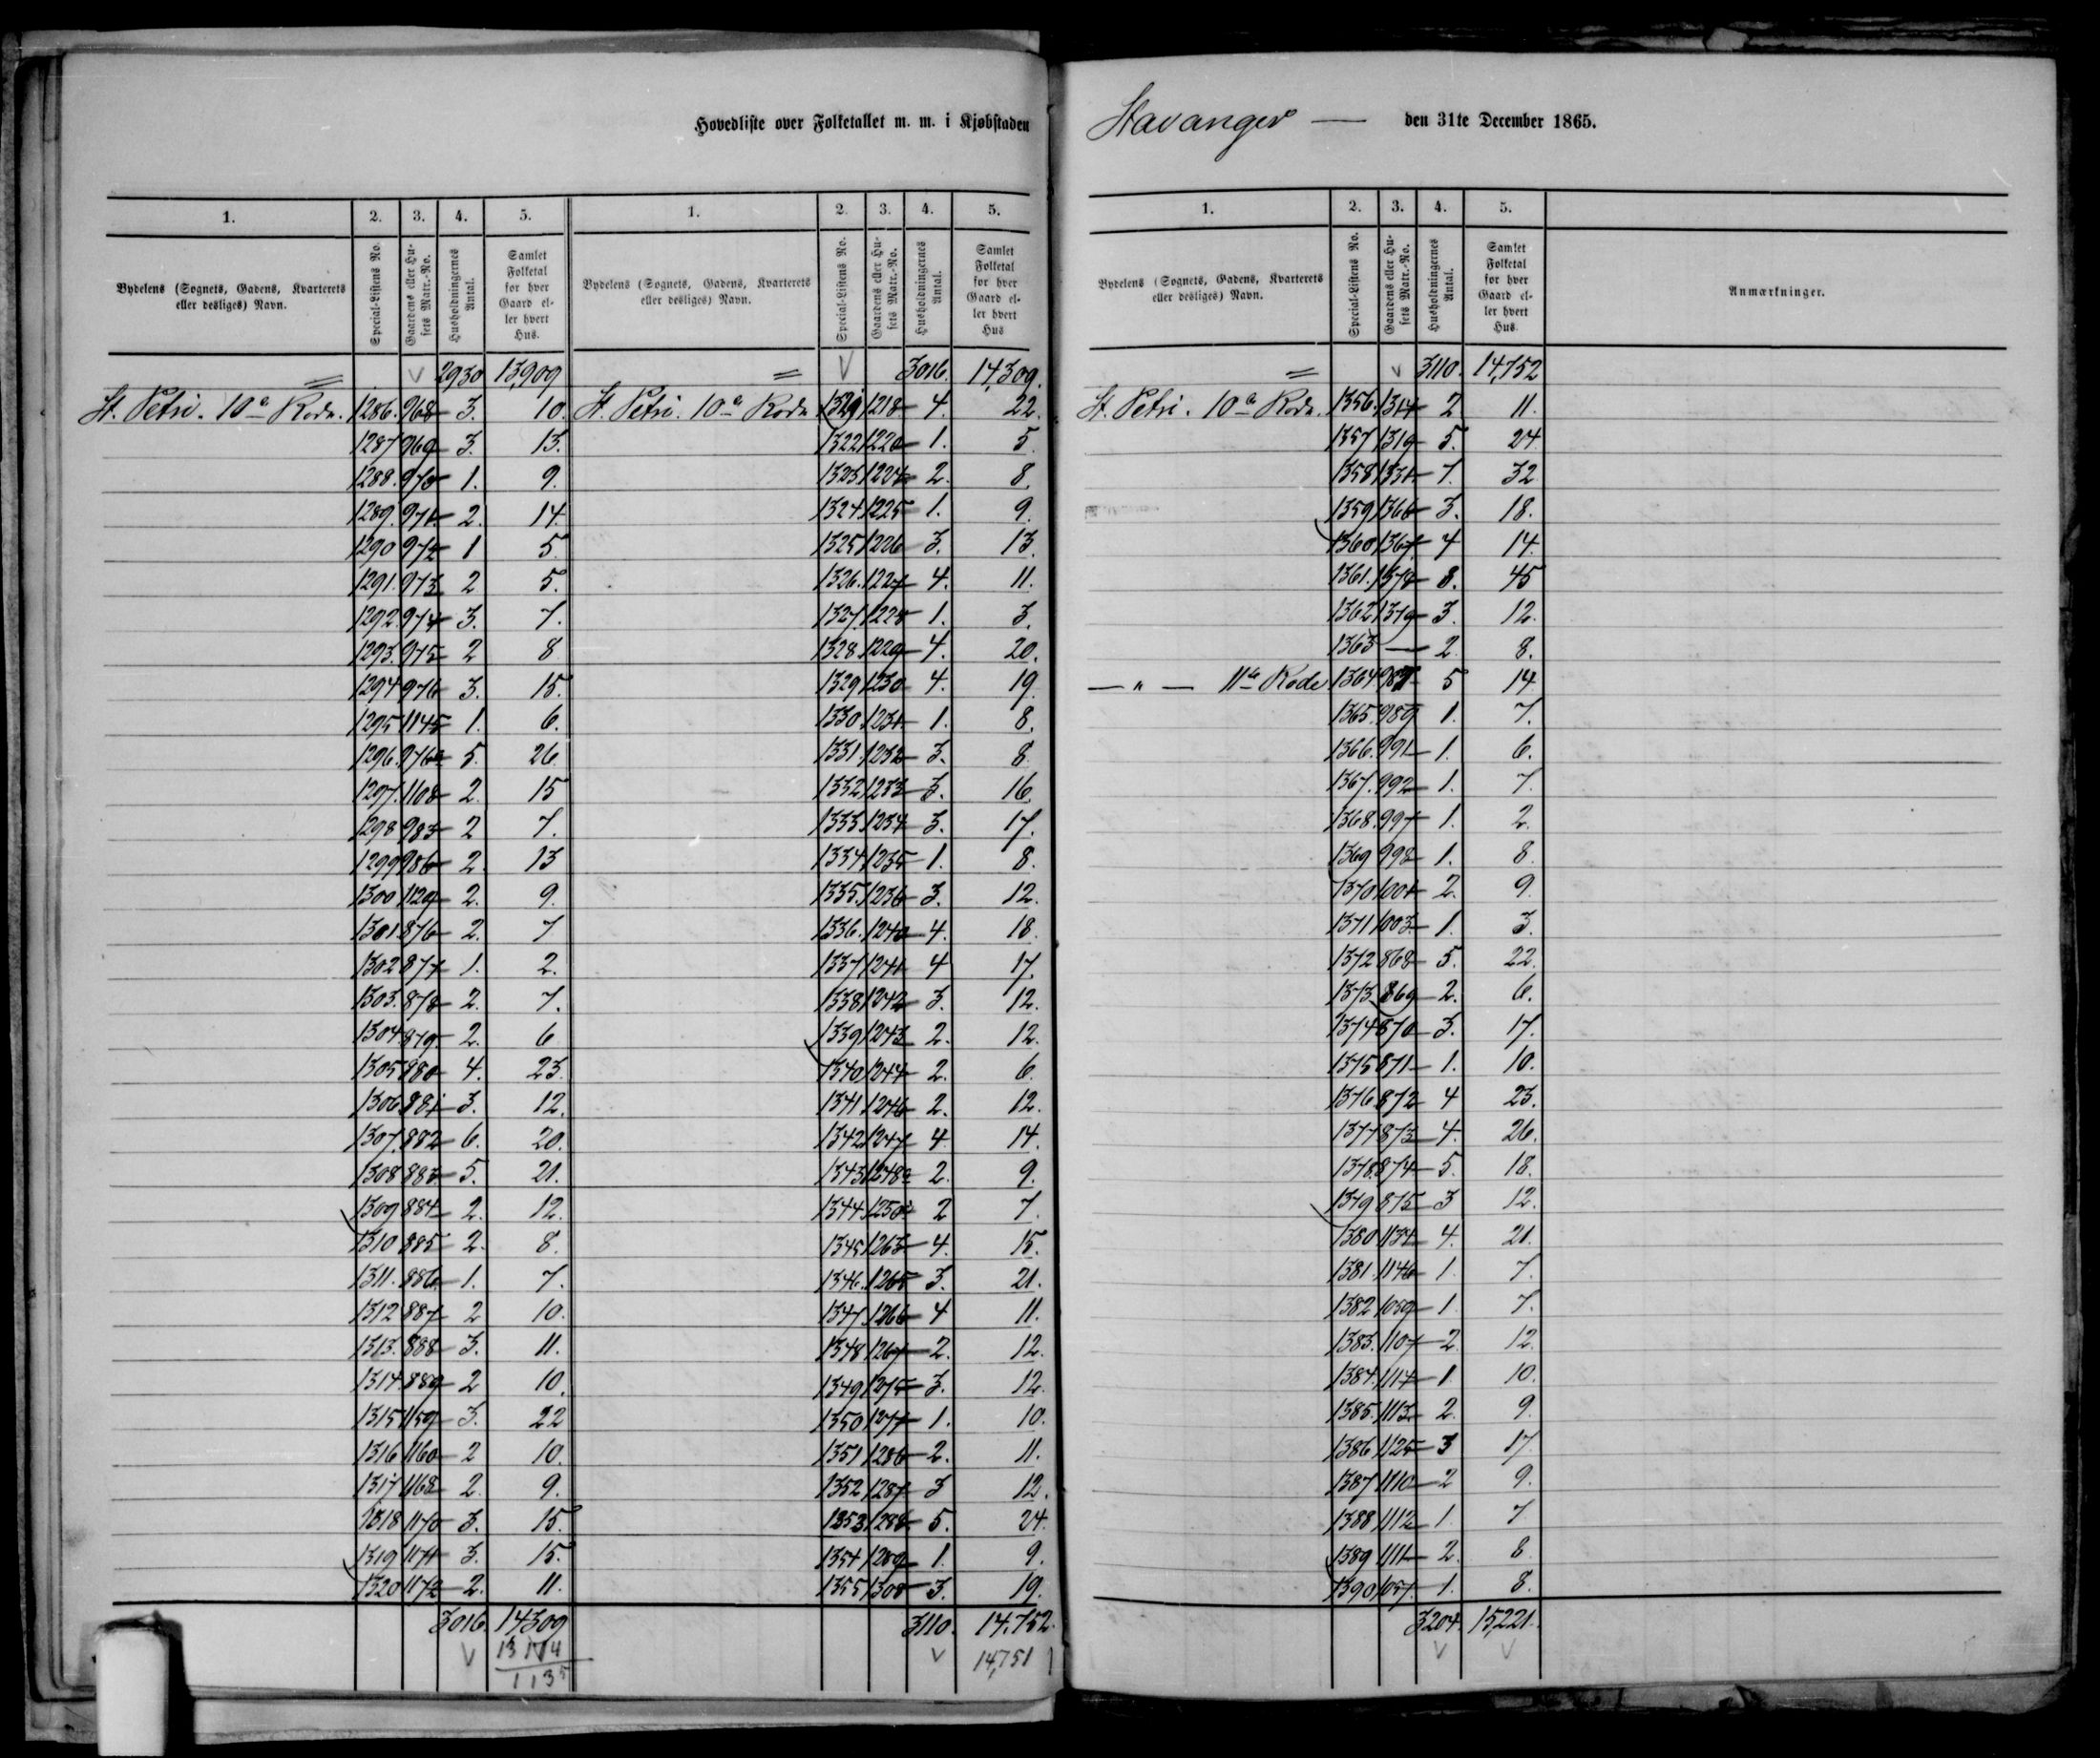 Hovedliste over Folketallet m. m. i Kjøbstaden Stavanger — den 31te December 1865.
1. 2. 3. 4. 5.
Bydelens (Sognets, Gadens, Kvarterets eller desliges) Navn. Special-Listens No. Gaardens eller Husets Matr.-No. Husholdningernes Antal. Samlet Folketal for hver Gaard eller hvert Hus.
2930 13,909
St. Petri. 10de Rode. 1286. 968 3. 10.
1287 969 3. 13.
1288. 970 1. 9.
1289. 971 2. 14.
1290 972 1 5.
1291. 973 2 5.
1292. 974 3. 7.
1293. 975 2 8
1294 976 3. 15.
1295 1145 1. 6.
1296. 976a 5. 26
1297. 1108 2. 15
1298 983 2 7.
1299 986 2. 13
1300 1129 2. 9.
1301. 876 2. 7
1302 877 1. 2.
1303. 878 2. 7.
1304 879. 2. 6
1305 880 4. 23.
1306 881 3. 12.
1307. 882 6. 20.
1308 883 5. 21.
1309 884 2. 12.
1310 885 2. 8.
1311. 886 1. 7.
1312 887 2 10.
1313. 888 3. 11.
1314 889 2 10.
1315 1159 3. 22
1316 1160 2 10.
1317 1168 2. 9.
1318 1170 3. 15.
1319 1171 3. 15.
1320 1172 2. 11.
3016. 14309
13174
1135
1. 2. 3. 4. 5.
Bydelens (Sognets, Gadens, Kvarterets eller desliges) Navn. Special-Listens No. Gaardens eller Husets Matr.-No. Husholdningernes Antal. Samlet Folketal for hver Gaard eller hvert Hus
3016. 14,309.
St. Petri. 10de Rode 1321 1218 4. 22.
1322 1220 1. 5
1323 1224 2. 8.
1324 1225 1. 9.
1325 1226 3. 13.
1326. 1227 4. 11.
1327. 1228 1. 3.
1328. 1229 4. 20.
1329 1230 4. 19
1330. 1231 1. 8.
1331. 1232 3. 8
1332 1233 3. 16.
1333. 1234 3. 17.
1334 1235 1. 8.
1335. 1236 3. 12.
1336. 1240 4. 18.
1337 1241 4 17.
1338 1242 3. 12.
1339 1243 2. 12.
1340 1244 2. 6.
1341 1246 2. 12.
1342 1247 4. 14.
1343 1248a 2. 9.
1344 1250 2 7.
1345 1263 4. 15.
1346. 1265 3. 21.
1347. 1266 4 11.
1348 1267 2. 12.
1349 1275 3. 12.
1350 1277 1. 10.
1351 1286 2. 11.
1352 1287 3 12.
1353 1288 5. 24.
1354 1289 1. 9.
1355 1308 3. 19.
3110. 14,752.
14,751
1. 2. 3. 4. 5.
Bydelens (Sognets, Gadens, Kvarterets eller desliges) Navn. Special-Listens No. Gaardens eller Husets Matr.-No. Husholdningernes Antal. Samlet Folketal for hver Gaard eller hvert Hus. Anmærkninger.
3110. 14,752
St. Petri. 10de Rode. 1356. 1314 2. 11.
1357 1319 5. 24
1358 1331 7. 32
1359 1366 3. 18.
1360 1367 4 14.
1361. 1378 8. 45
1362 1379 3. 12.
1363 — 2. 8.
— " — 11te Rode 1364 987 5 14
1365. 989 1. 7.
1366. 991 1. 6.
1367. 992 1. 7.
1368. 997 1. 2.
1369 998 1. 8.
1370 1001 2. 9.
1371 1003. 1. 3.
1372 868 5. 22.
1373. 869 2. 6.
1374 870 3. 17.
1375 871 1. 10.
1376 872 4 23.
1377 873 4. 26.
1378. 874 5. 18.
1379 875 3 12.
1380 1134 4. 21.
1381. 1146 1. 7.
1382 1059 1 7.
1383. 1107 2. 12.
1384. 1114 1 10.
1385. 1113 2. 9.
1386 1125 3 17.
1387 1110 2 9.
1388 1112 1. 7
1389 1111 2. 8.
1390 1057. 1. 8.
3204. 15,221.